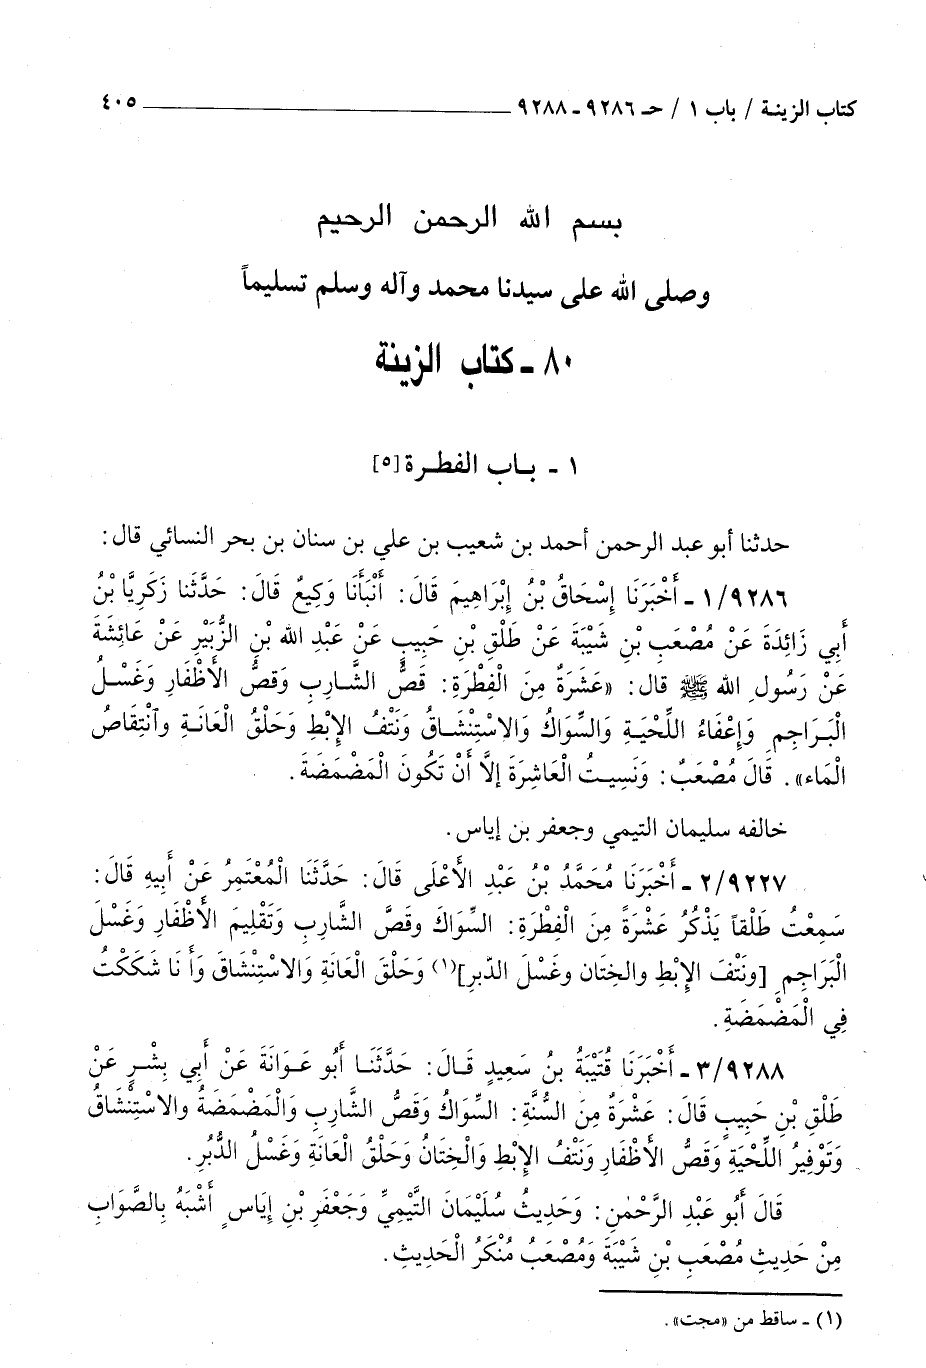 كتاب الزينة / باب ١ / حـ ٩٢٨٦ - ٩٢٨٨ ٤٠٥
بسم الله الرحمن الرحيم
وصلى الله على سيدنا محمد وآله وسلم تسليماً
٨٠ - كتاب الزينة
١ - باب الفطرة [٥]
حدثنا أبو عبد الرحمن أحمد بن شعيب بن علي بن سنان بن بحر النسائي قال:
١/٩٢٨٦ - أَخْبَرَنَا إِسْحَاقُ بْنُ إِبْرَاهِيمَ قَالَ: أَنْبَأَنَا وَكِيعٌ قَالَ: حَدَّثَنا زَكَرِيَّا بْنُ
أَبِي زَائِدَةَ عَنْ مُصْعَبِ بْنِ شَيْبَةَ عَنْ طَلْقِ بْنِ حَبِيبٍ عَنْ عَبْدِ الله بْنِ الزُّبَيْرِ عَنْ عَائِشَةَ
عَنْ رَسُولِ الله ﷺ قال: «عَشَرَةٌ مِنَ الْفِطْرَةِ: قَصُّ الشَّارِبِ وَقصُّ الأَظْفَارِ وَغَسْلُ
الْبَرَاجِمِ وَإِعْفَاءُ اللِّحْيَةِ وَالسِّوَاكُ وَالاسْتِنْشَاقُ وَنَتْفُ الإِبْطِ وَحَلْقُ الْعَانَةِ وَآنْتِقَاصُ
الْمَاء». قَالَ مُصْعَبٌ: وَنَسِيتُ الْعَاشِرَةَ إلاَّ أَنْ تَكُونَ الْمَضْمَضَةَ.
خالفه سليمان التيمي وجعفر بن إياس.
٢/٩٢٢٧ - أَخْبَرَنَا مُحَمَّدُ بْنُ عَبْدِ الأَعْلَى قَالَ: حَدَّثَنَا الْمُعْتَمِرُ عَنْ أَبِيهِ قَالَ:
سَمِعْتُ طَلْقاً يَذْكُرُ عَشْرَةً مِنَ الْفِطْرَةِ: السِّوَاكَ وَقصَّ الشَّارِبِ وَتَقْلِيمَ الأَظْفَارِ وَغَسْلَ
الْبَرَاجِمِ [ونَتْفَ الإِبْطِ والخِتَان وغَسْلَ الدّبرِ](١) وَحَلْقَ الْعَانَةِ وَالاسْتِنْشَاقَ وَأَنَا شَكَكْتُ
فِي الْمَضْمَضَةِ.
٣/٩٢٨٨ - أَخْبَرَنَا قُتَيْبَةُ بْنُ سَعِيدٍ قَالَ: حَدَّثَنَا أَبُو عَوَانَةَ عَنْ أَبِي بِشْرٍ عَنْ
طَلْقِ بْنِ حَبِيبٍ قَالَ: عَشْرَةٌ مِنَ السُّنَّةِ: السِّوَاكُ وَقَصُّ الشَّارِبِ وَالْمَضْمَضَةُ والاسْتِنْشَاقُ
وَتَوْفِيرُ اللِّحْيَةِ وَقَصُّ الأَظْفَارِ وَنَتْفُ الإِبْطِ وَالْخِتَانُ وَحَلْقُ الْعَانَةِ وَغَسْلُ الدُّبُرِ.
قَالَ أَبُو عَبْدِ الرَّحْمٰنِ: وَحَدِيثُ سُلَيْمَانَ التَّيْمِيِّ وَجَعْفَرِ بْنِ إِيَاسٍ أَشْبَهُ بِالصَّوَابِ
مِنْ حَدِيثِ مُصْعَبِ بْنِ شَيْبَةَ وَمُصْعَبُ مُنْكَرُ الْحَدِيثِ.
(١) - ساقط من «مجت».